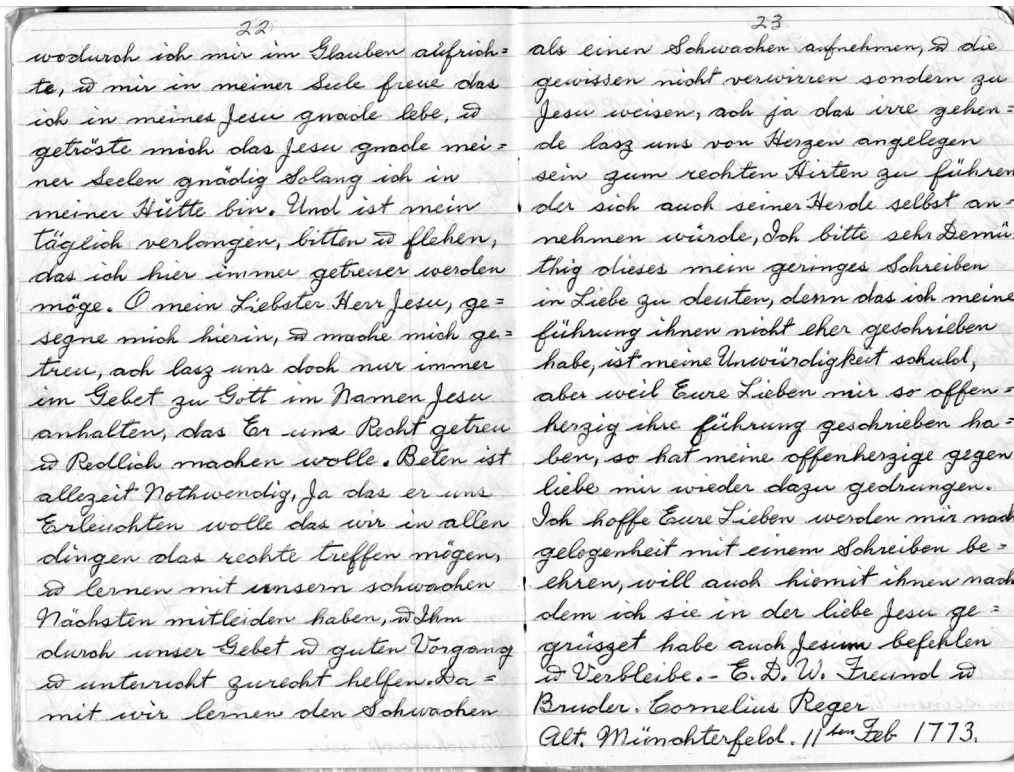 22
wodurch ich mir im Glauben aufrich=
te, u mir in meiner Seele freue das
ich in meines Jesu gnade lebe, u
getröste mich das Jesu gnade mei=
ner Seelen gnädig Solang ich in
meiner Hütte bin. Und ist mein
täglich verlangen, bitten u flehen,
das ich hier immer getreuer werden
möge. O mein Liebster Herr Jesu, ge=
segne mich hierin, u mache mich ge=
treu, ach lasz uns doch nur immer
im Gebet zu Gott im Namen Jesu
anhalten, das Er uns Recht getreu
u Redlich machen wolle. Beten ist
allezeit Nothwendig, Ja das er uns
Erleuchten wolle das wir in allen
dingen das rechte treffen mögen,
u lernen mit unsern schwachen
Nächsten mitleiden haben, u Ihm
durch unser Gebet u guten Vorgang
u unterricht zurecht helfen. Da=
mit wir lernen den Schwachen
23
als einen Schwachen aufnehmen, u die
gewissen nicht verwirren sondern zu
Jesu weisen, ach ja das irre gehen=
de lasz uns von Herzen angelegen
sein zum rechten Hirten zu führen
der sich auch seiner Herde selbst an=
nehmen würde, Ich bitte sehr Demü
thig dieses mein geringes Schreiben
in Liebe zu deuten, denn das ich meine
führung ihnen nicht eher geschrieben
habe, ist meine Unwürdigkeit schuld,
aber weil Eure Lieben mir so offen=
herzig ihre führung geschrieben ha=
ben, so hat meine offenherzige gegen
liebe mir wieder dazu gedrungen.
Ich hoffe Eure Lieben werden mir nach
gelegenheit mit einem Schreiben be=
ehren, will auch hiemit ihnen nach
dem ich sie in der liebe Jesu ge=
grüszet habe auch Jesum befehlen
u Verbleibe. - E. D. W. Freund u
Bruder. Cornelius Reger
Alt. Münchterfeld. 11ten Feb 1773.